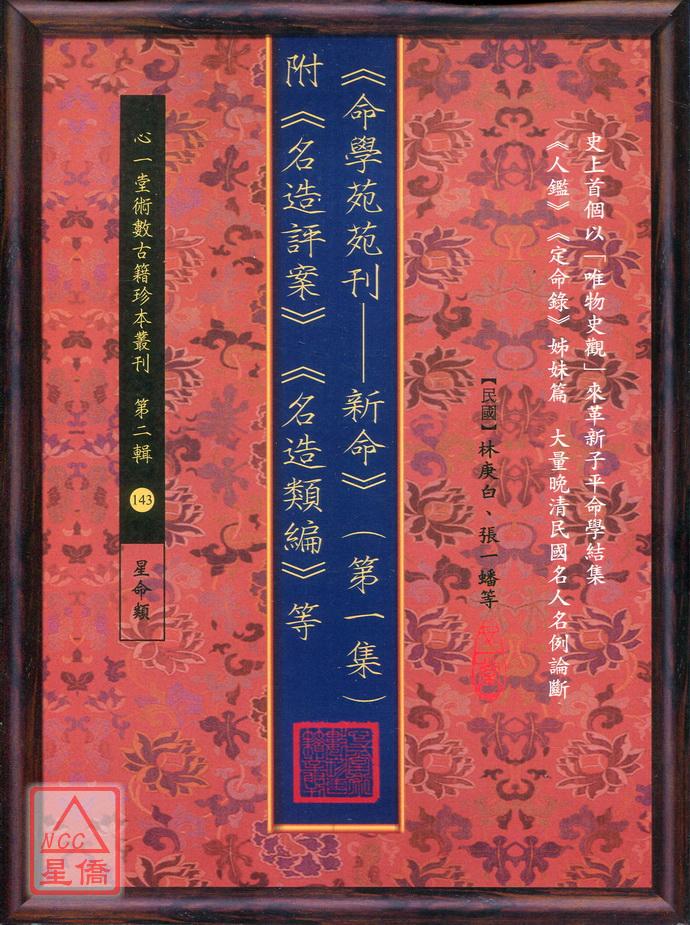 史上首個以「唯物史觀」來革新子平命學結集
《人鑑》《定命錄》姊妹篇 大量晚清民國名人名例論斷
【民國】林庚白、張一蟠等
《命學苑苑刊——新命》（第一集）
附《名造評案》《名造類編》等
心一堂術數古籍珍本叢刊 第二輯
143
星命類
NCC
星僑